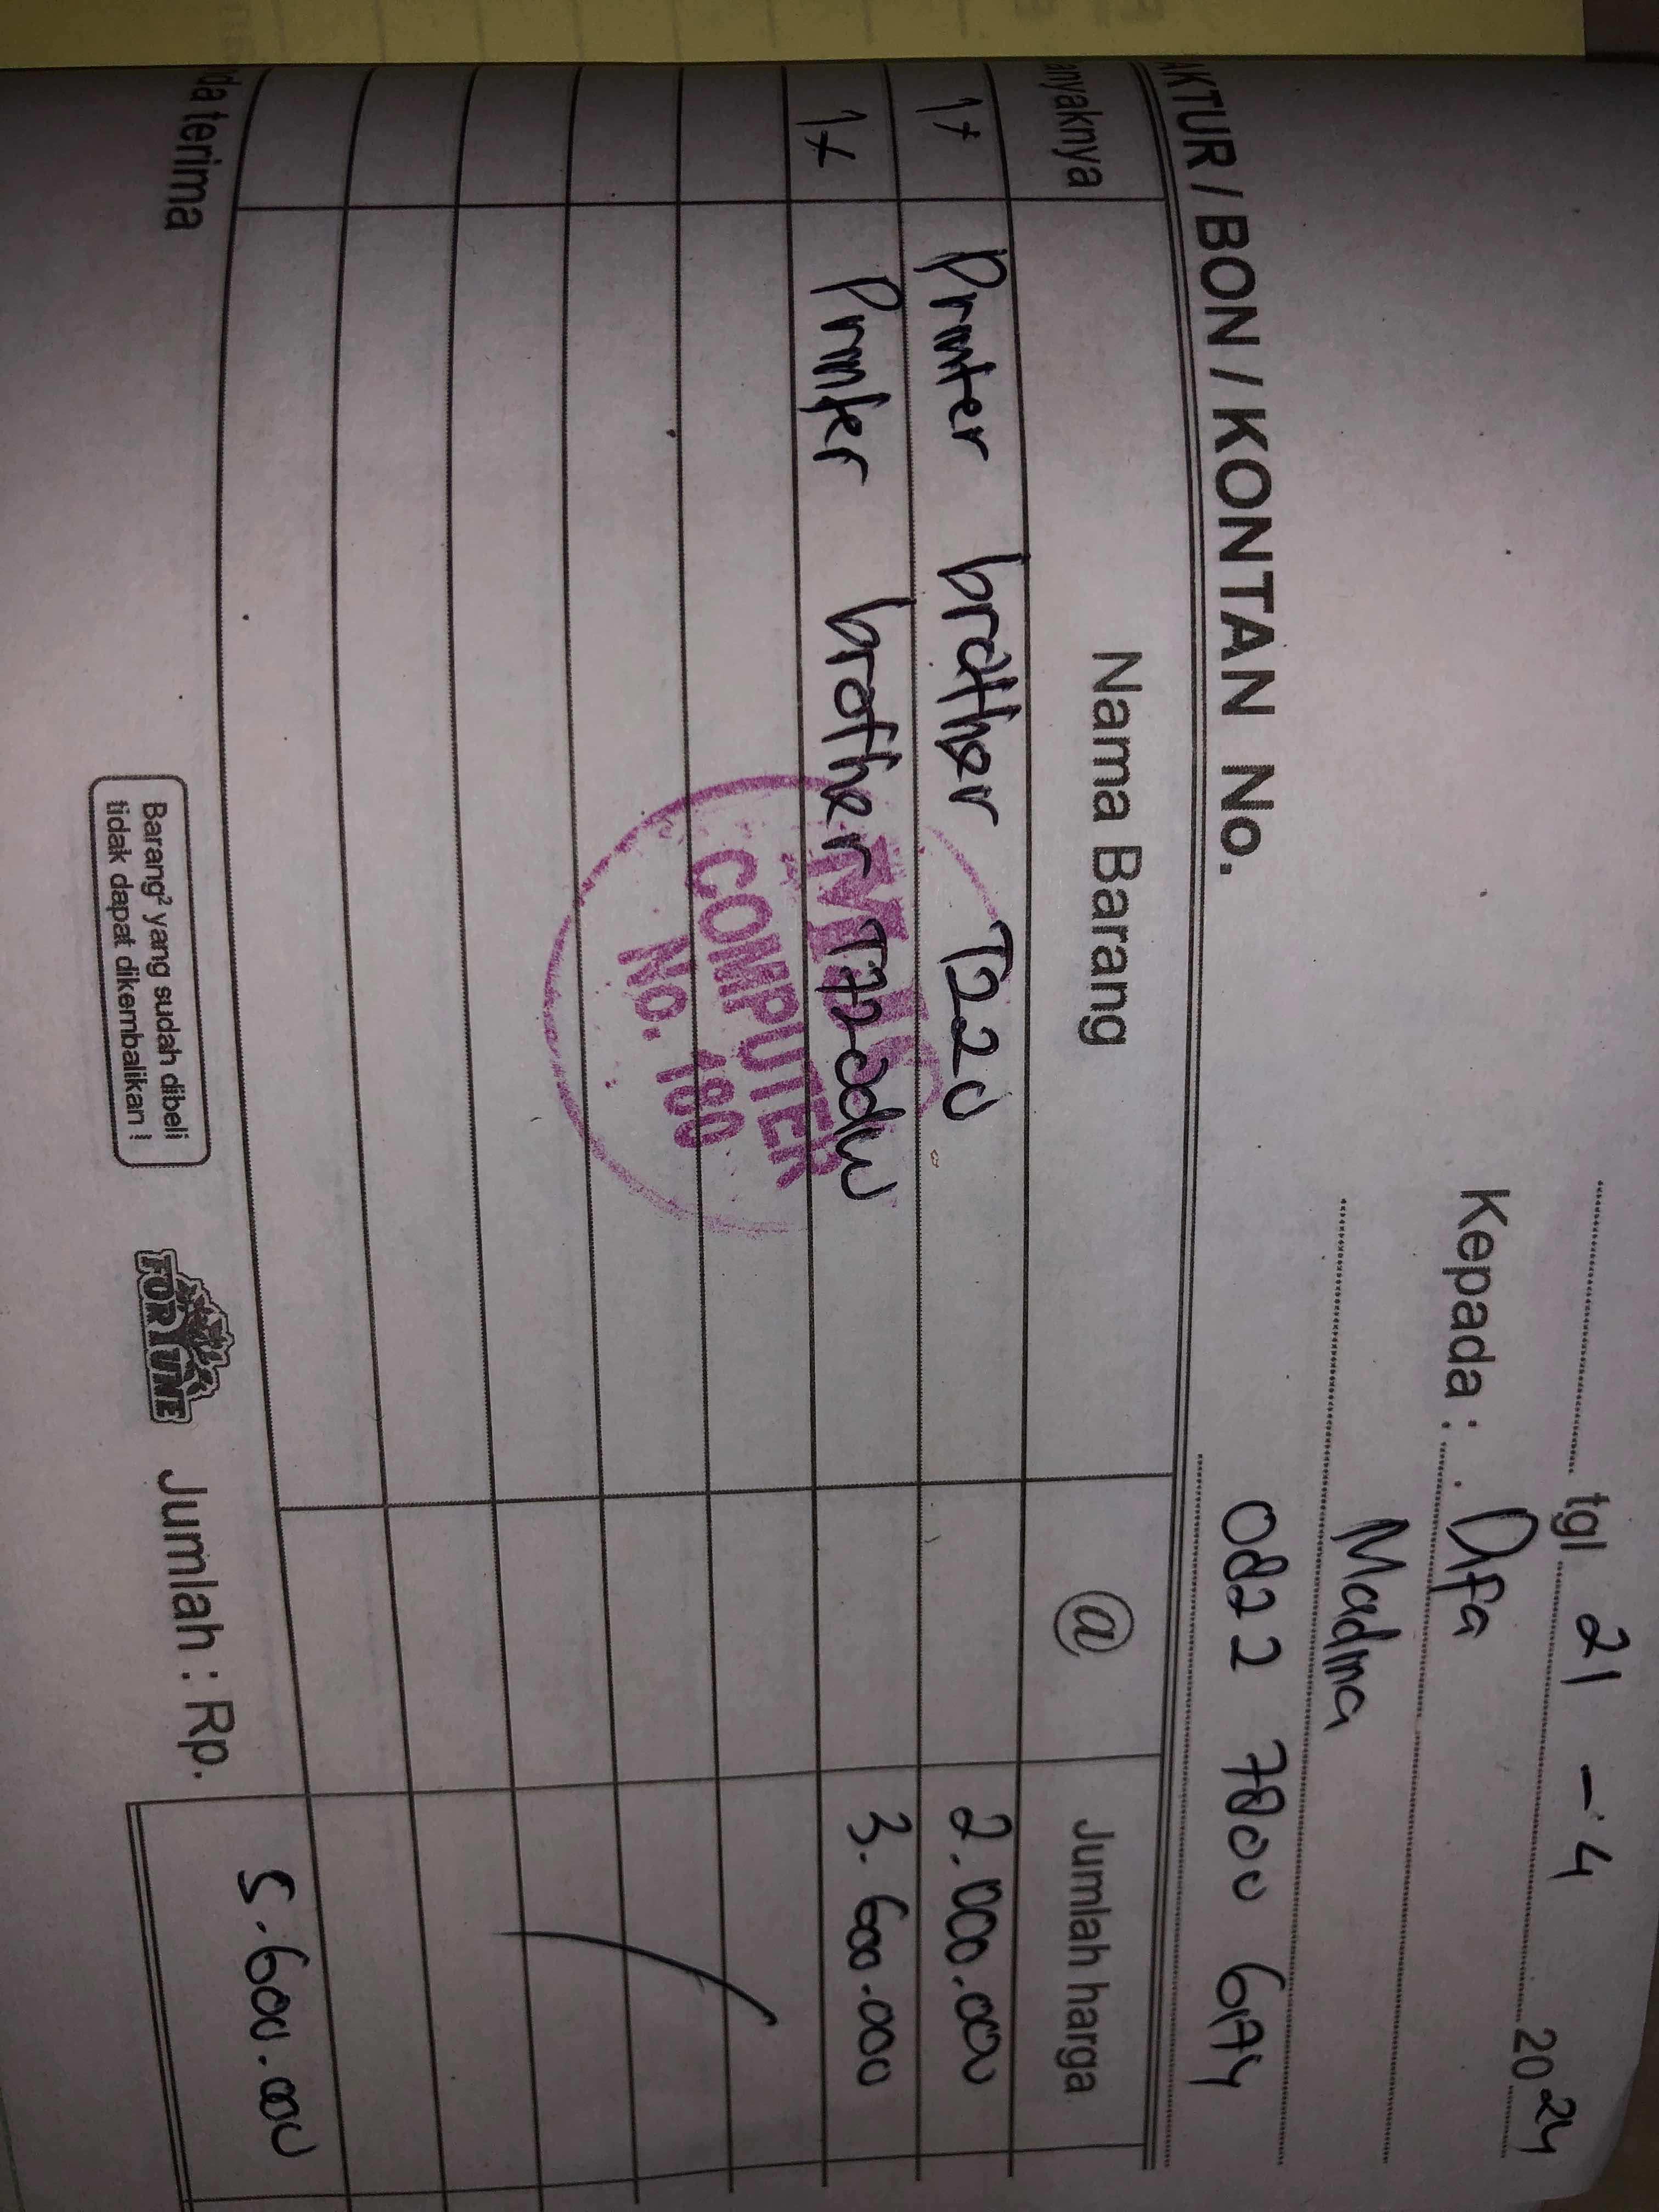 tgl 21 - 4 2024
Kepada : Difa
Madina
0822 7800 6474
AKTUR / BON / KONTAN No.
anyaknya Nama Barang @ Jumlah harga
1x Printer brother T220 2.000.000
1x Printer brother T720dw 3.600.000
COMPUTER
No. 180
da terima
Barang² yang sudah dibeli
tidak dapat dikembalikan !
FORTUNE
Jumlah : Rp. 5.600.000